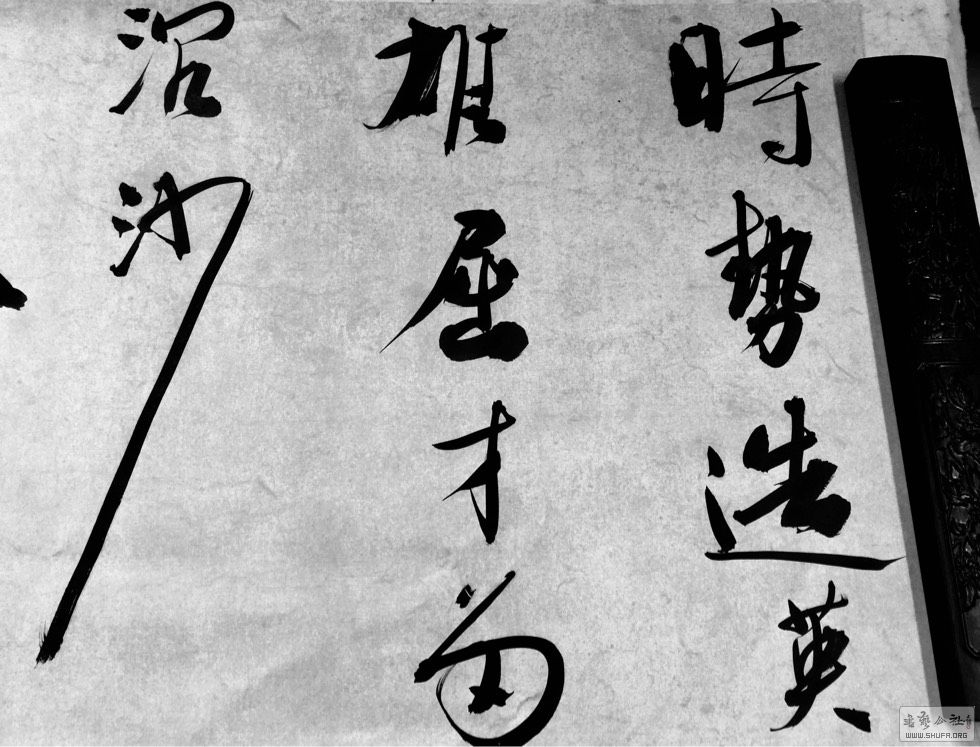 時勢造英
雄屈才為
沿沙
書藝公社
WWW.SHUFA.ORG